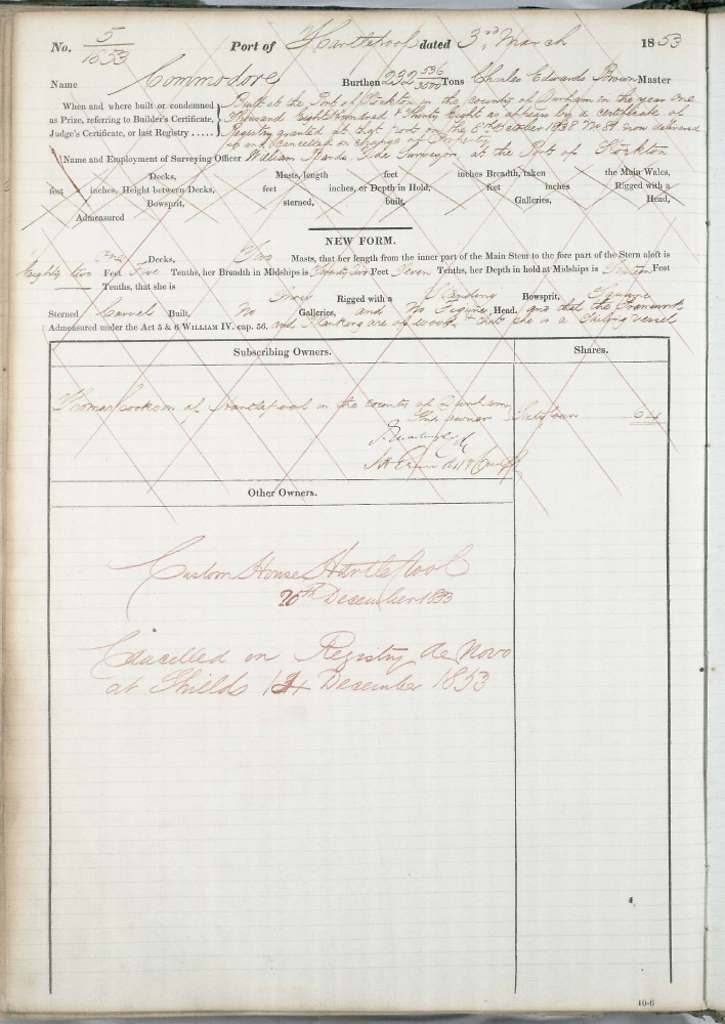 No. 5/1853 Port of Hartlepool dated 3rd March 1853
Name Commodore Burthen 232 536/3500 Tons Charles Edward Brown Master
When and where built or condemned
as Prize, referring to Builder's Certificate,
Judge's Certificate, or last Registry .....
Built at the Port of Stockton in the county of Durham in the year One
Thousand Eight hundred & Thirty Eight as appears by a certificate of
Registry granted at that Port on the October 1838 No 84 now delivered
up and cancelled on change of Property
Name and Employment of Surveying Officer William Tide Surveyor at the Port of Stockton
Decks, Masts, length feet inches Breadth, taken the Main Wales,
feet inches, Height between Decks, feet inches, or Depth in Hold, feet inches Rigged with a
Bowsprit, sterned, built, Galleries, Head,
Admeasured
NEW FORM.
One Decks, Two Masts, that her length from the inner part of the Main Stem to the fore part of the Stern aloft is
Eighty two Feet Five Tenths, her Breadth in Midships is Twenty Feet Seven Tenths, her Depth in hold at Midships is Feet
Tenths, that she is Rigged with a Standing Bowsprit, Square
Sterned Carvel Built, No Galleries, and No Figure Head. and that the Framework
Admeasured under the Act 5 & 6 WILLIAM IV. cap. 56. and Planking are of wood & that she is a Sailing vessel
Subscribing Owners. Shares.
Thomas Cookson of Hartlepool in the county of Durham
Ship owner Sixty four 64
Other Owners.
Custom House Hartlepool
20th December 1853
Cancelled on Registry de Novo
at Shields 14 December 1853
10-6